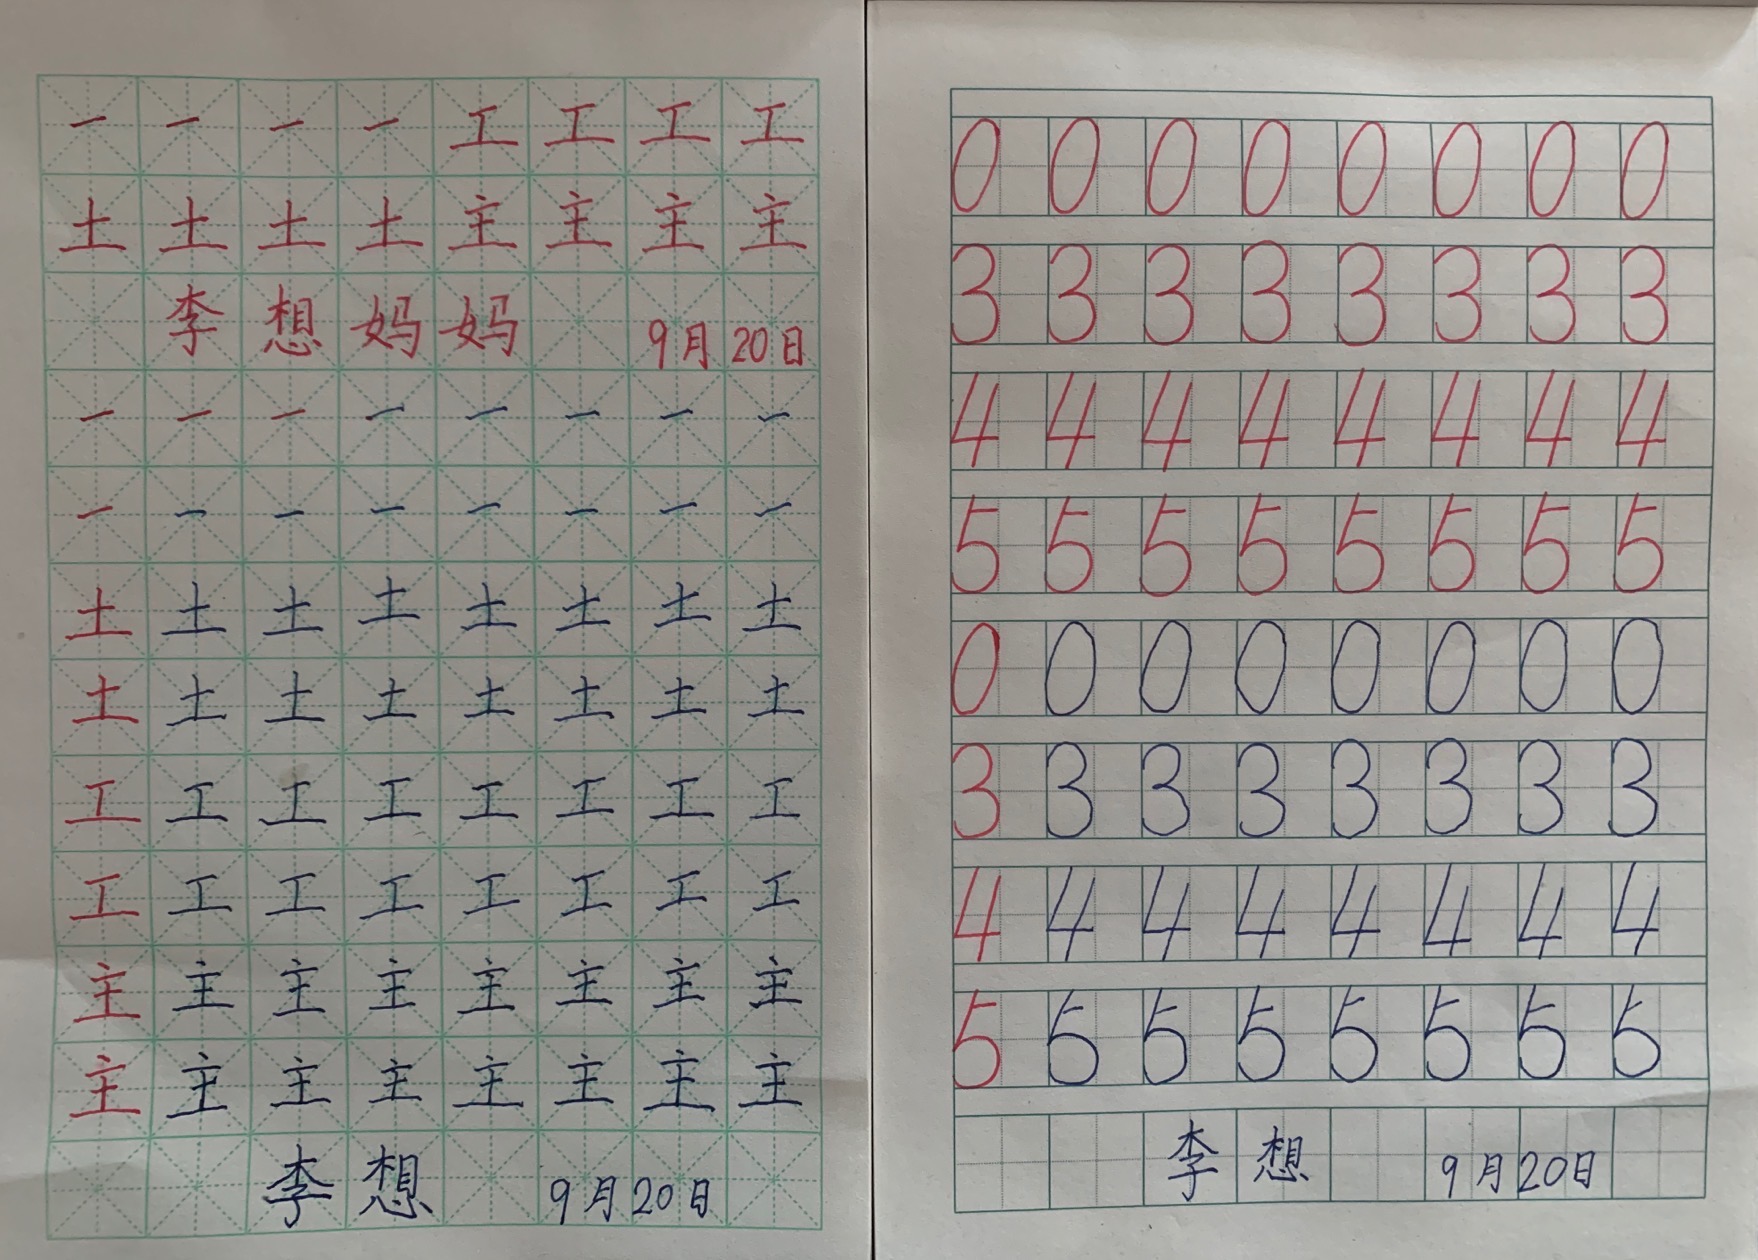 一 一 一 一 工 工 工 工
土 土 土 土 主 主 主 主
李 想 妈 妈 9月 20日
一 一 一 一 一 一 一 一
一 一 一 一 一 一 一 一
土 土 土 土 土 土 土 土
土 土 土 土 土 土 土 土
工 工 工 工 工 工 工 工
工 工 工 工 工 工 工 工
主 主 主 主 主 主 主 主
主 主 主 主 主 主 主 主
李 想 9月20日
0 0 0 0 0 0 0 0
3 3 3 3 3 3 3 3
4 4 4 4 4 4 4 4
5 5 5 5 5 5 5 5
0 0 0 0 0 0 0 0
3 3 3 3 3 3 3 3
4 4 4 4 4 4 4 4
5 5 5 5 5 5 5 5
李 想 9月20日